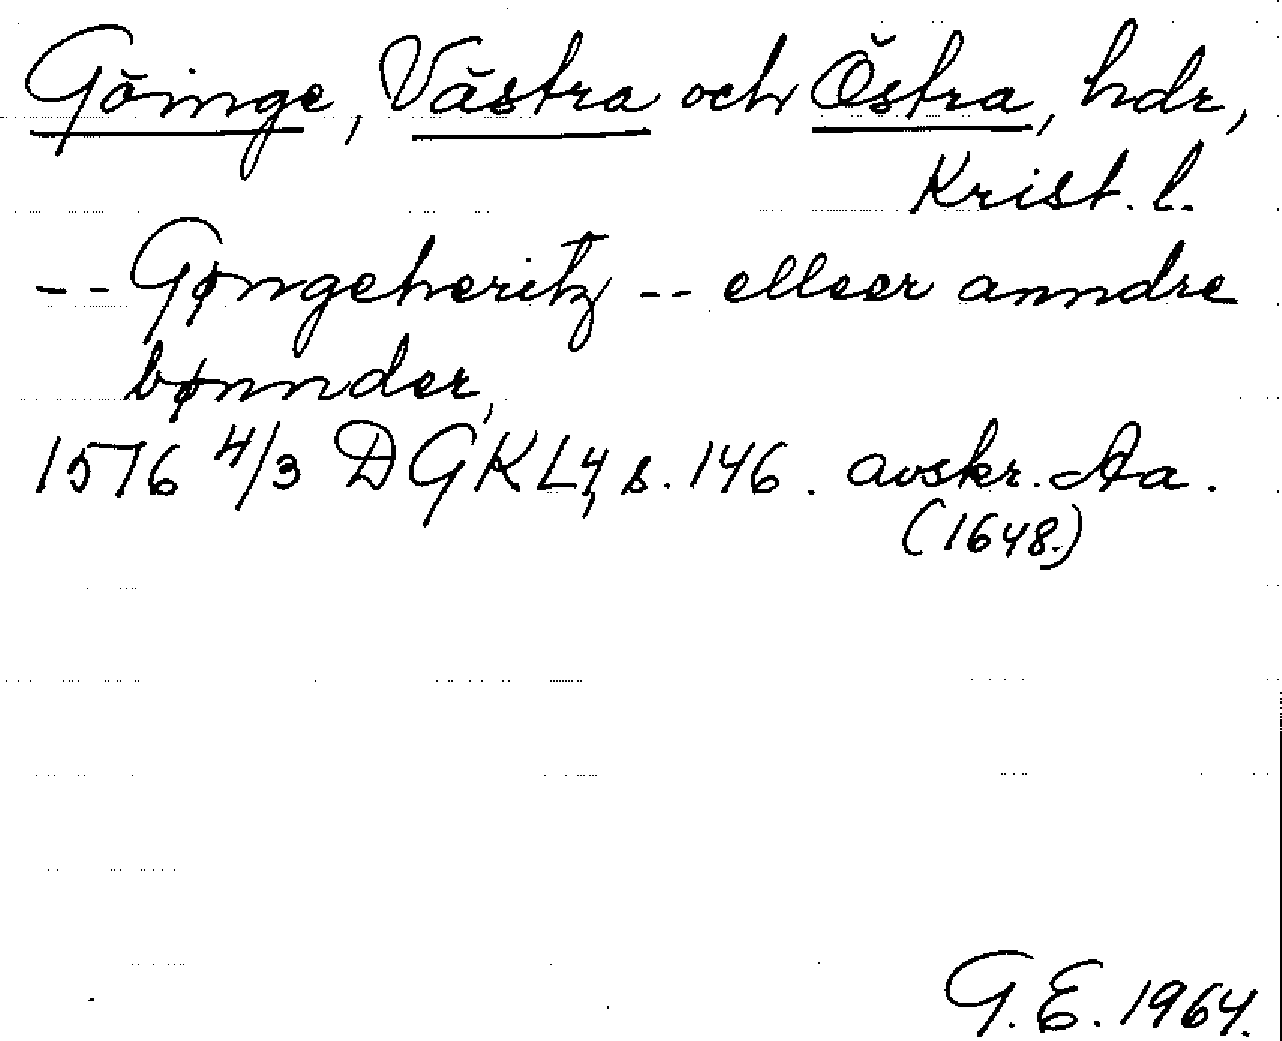 Göinge, Västra och Östra, hdr,
Krist. l.
-- Gøngeheritz -- elleer anndre
bønnder,
1576 4/3 DGKL4, s. 146. avskr. Aa.
(1648.)
G.E. 1964.